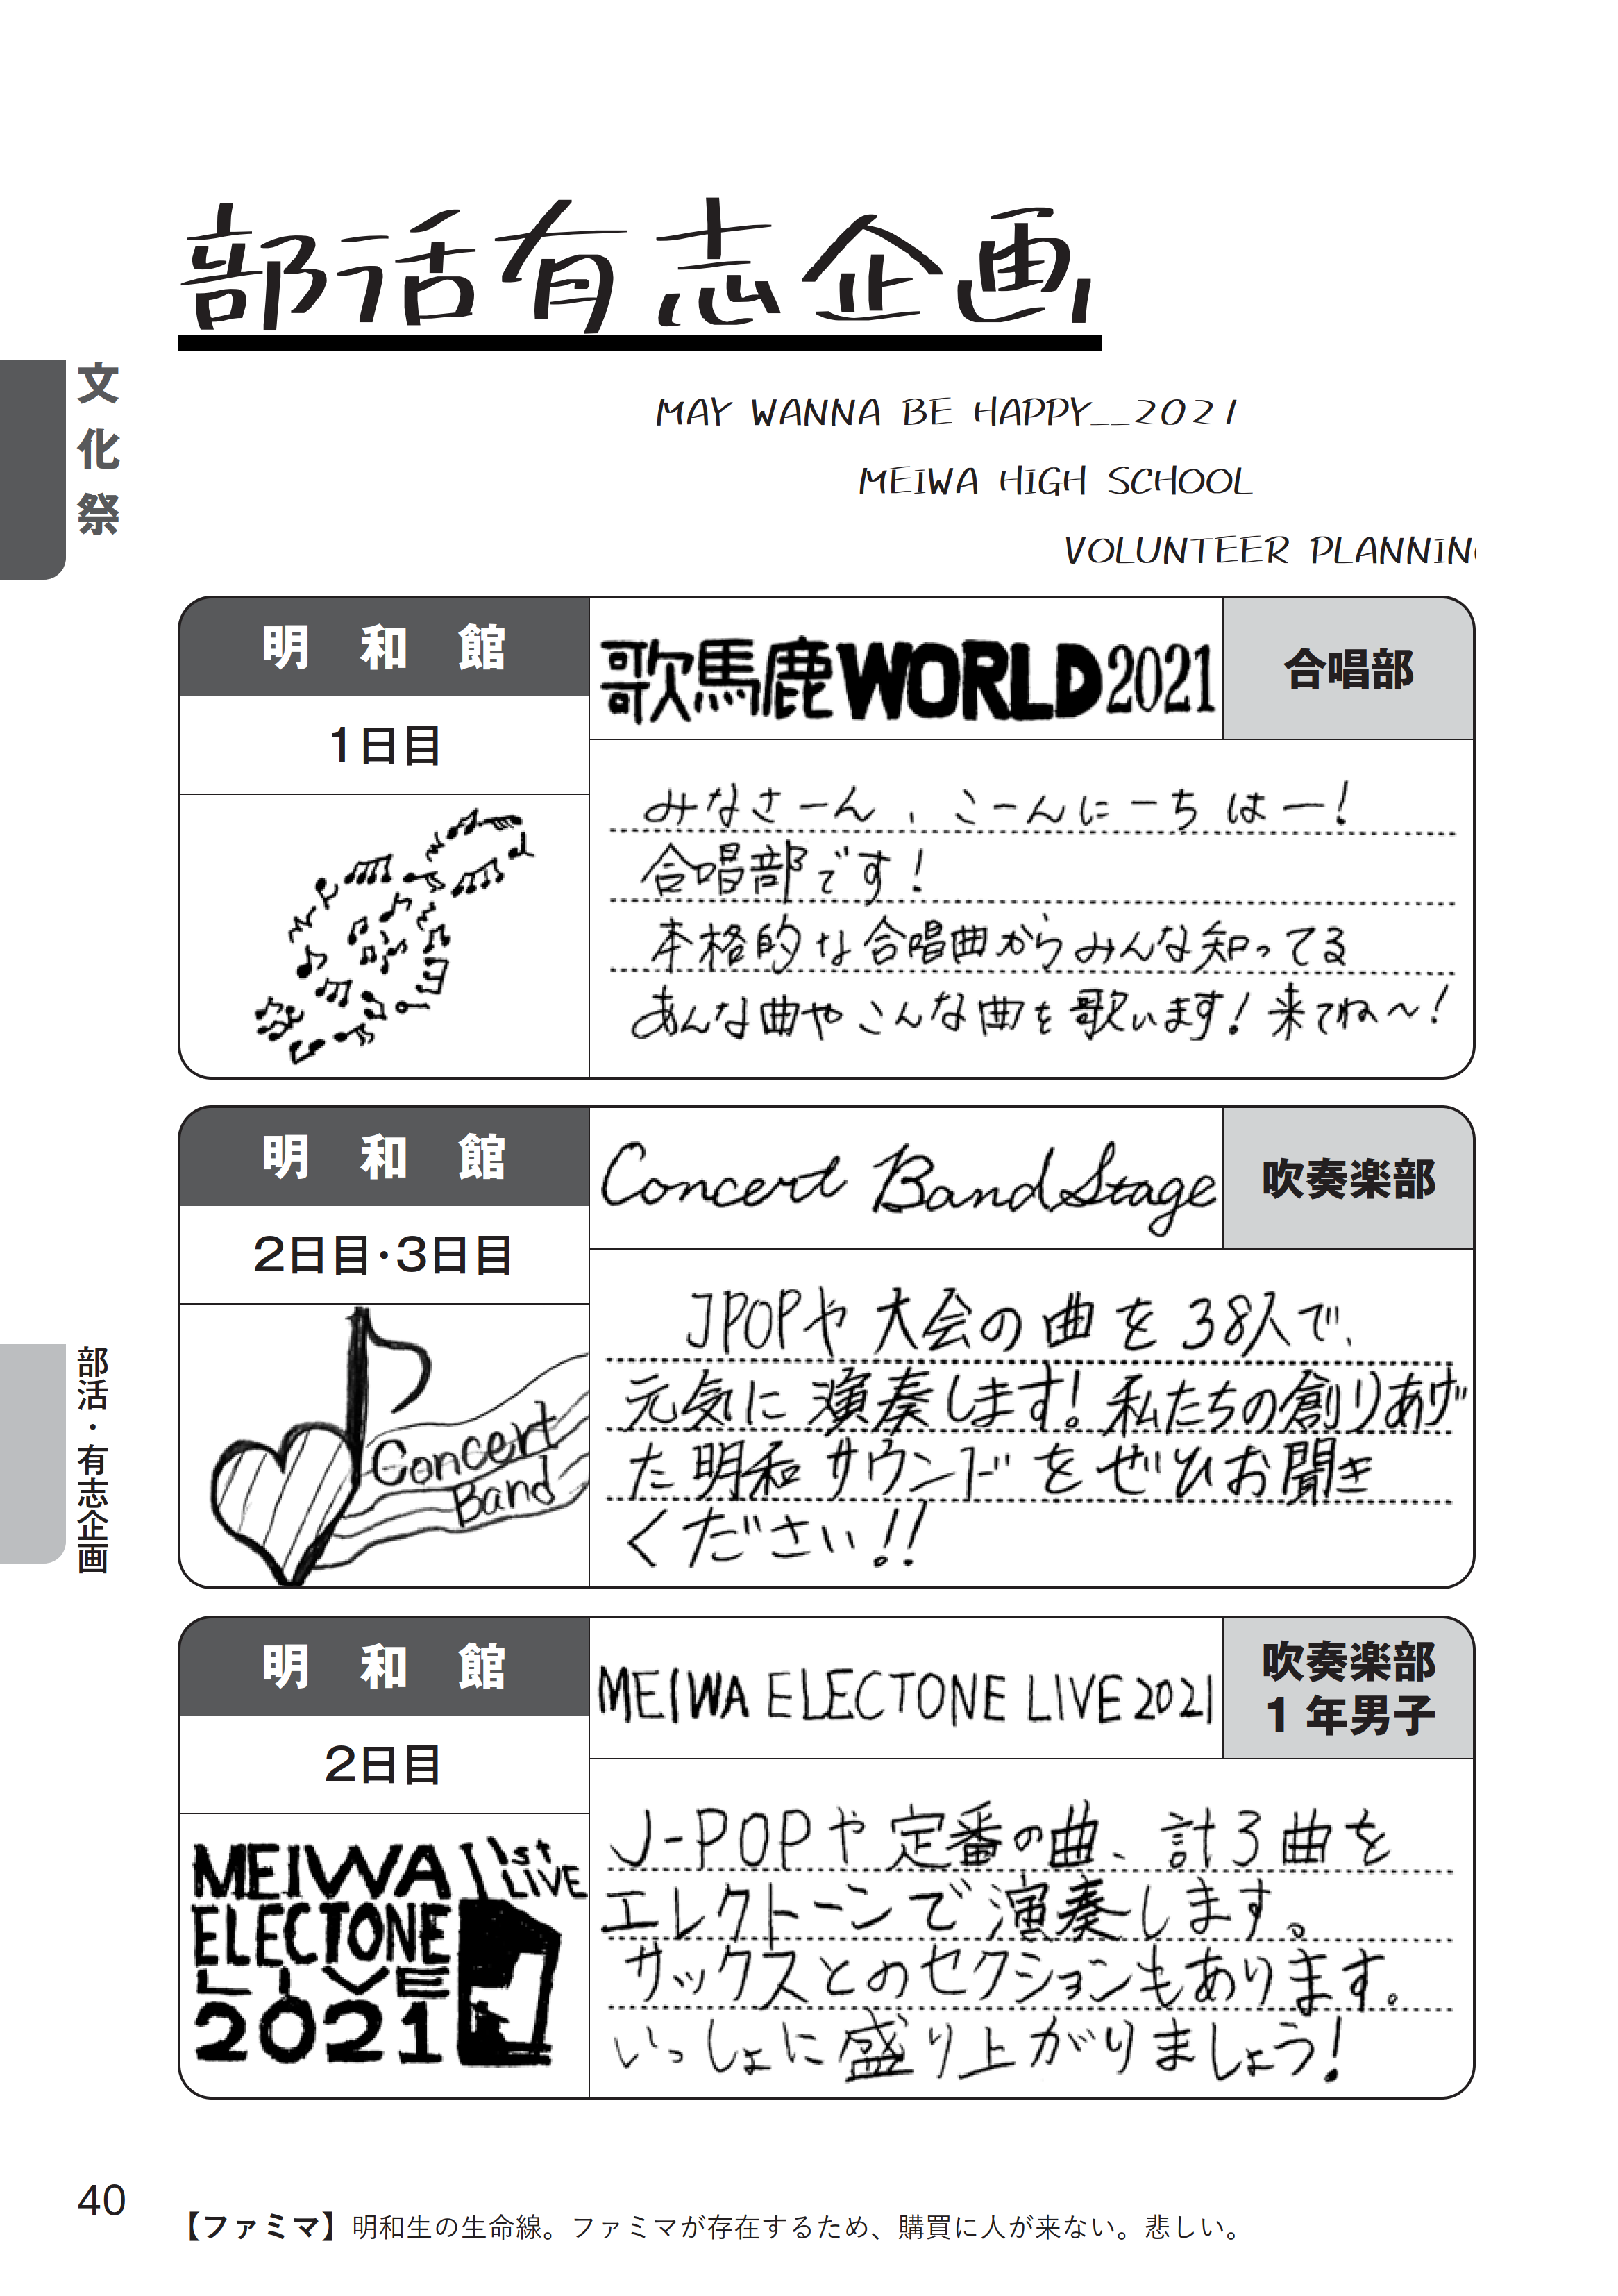 部活有志企画
MAY WANNA BE HAPPY__2021
MEiWA HiGH SCHOOL
VOLUNTEER PLANNIN
文化祭
明和館
1日目
歌馬鹿WORLD2021
合唱部
みなさーん、こーんにーちはー!
合唱部です!
本格的な合唱曲からみんな知ってる
あんな曲やこんな曲を歌います!来てね〜!
明和館
2日目・3日目
Concert Band Stage
吹奏楽部
Concert
Band
JPOPや大会の曲を38人で、
元気に演奏します!私たちの創りあげ
た明和サウンドをぜひお聞き
ください!!
部活・有志企画
明和館
2日目
MEIWA ELECTONE LIVE 2021
吹奏楽部
1年男子
MEIWA
ELECTONE
LIVE
2021
1st
LIVE
J-POPや定番の曲、計3曲を
エレクトーンで演奏します。
サックスとのセクションもあります。
いっしょに盛り上がりましょう!
40
【ファミマ】明和生の生命線。ファミマが存在するため、購買に人が来ない。悲しい。